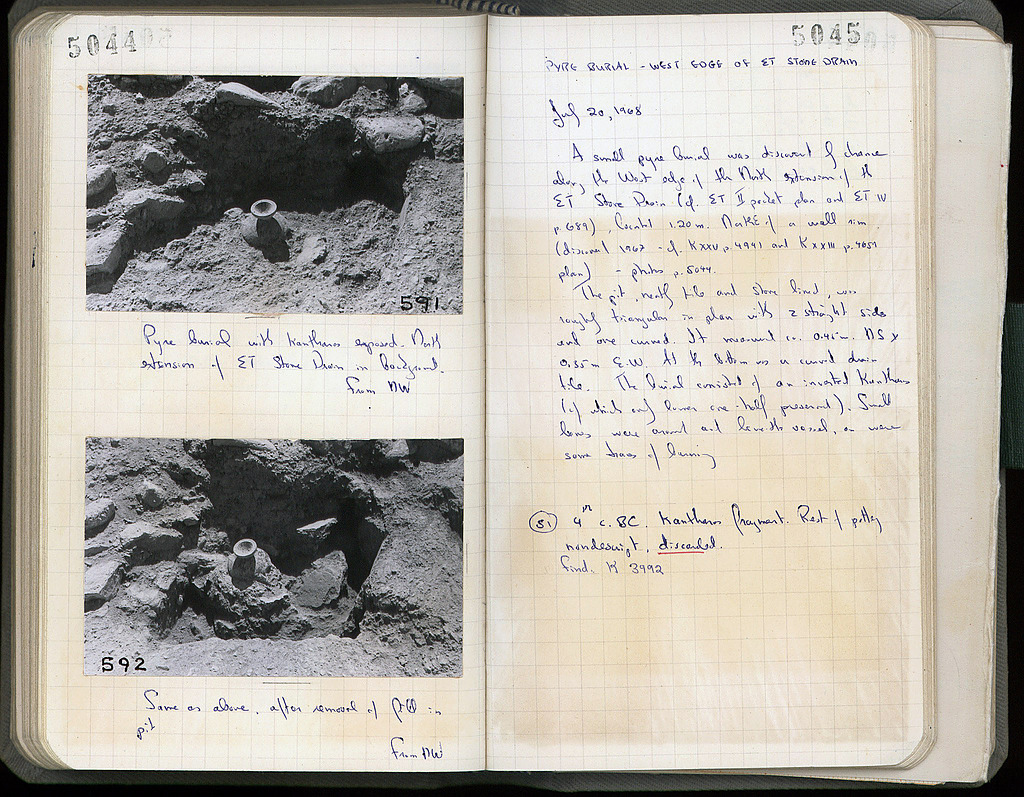 5044
591
Pyre burial with kantharos exposed. North
extension of ET Stone Drain in background.
from NW
592
Same as above, after removal of fill in
pit
from NW
5045
PYRE BURIAL - WEST EDGE OF ET STONE DRAIN
July 20, 1968
A small pyre burial was discovered by chance
along the West edge of the North extension of the
ET Stone Drain (cf. ET II pocket plan and ET IV
p. 689), located 1.20 m. North of a wall
(discovered 1967 - cf. K XXV p. 4941 and K XXIII p.
plan) - photos p. 5044.
The pit, neatly tile and stone lined, was
roughly triangular in plan with 2 straight sides
and one curved. It measured ca. 0.45 m. NS x
0.55 m E.W. At the bottom was a curved drain
tile. The burial consisted of an inverted Kantharos
(of which only lower one-half preserved). Small
bones were around and beneath vessel, as were
some traces of burning
51 4th c. BC. Kantharos fragment. Rest of pottery
nondescript, discarded.
find. K 3992